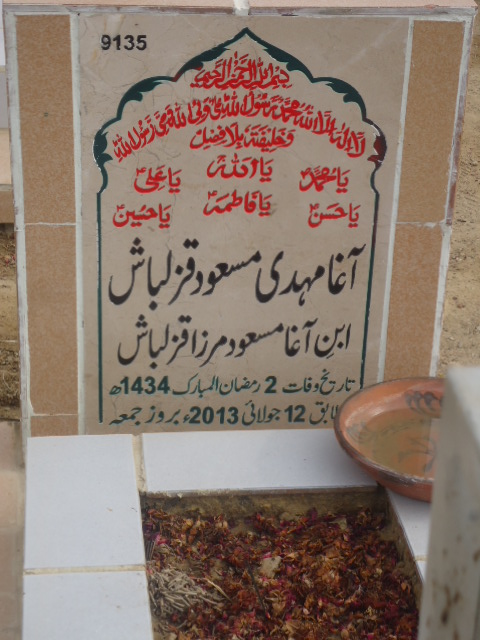 9135
بسم اللہ الرحمن الرحیم
لا الہ الا اللہ محمد رسول اللہ علی ولی اللہ وصی رسول اللہ
وخلیفتہ بلا فصل
یا اللہ
یا محمدؐ
یا علیؑ
یا حسنؑ
یا فاطمہؑ
یا حسینؑ
آغا مہدی مسعود قزلباش
ابنِ آغا مسعود مرزا قزلباش
تاریخ وفات 2 رمضان المبارک 1434ھ
مطابق 12 جولائی 2013ء بروز جمعہ